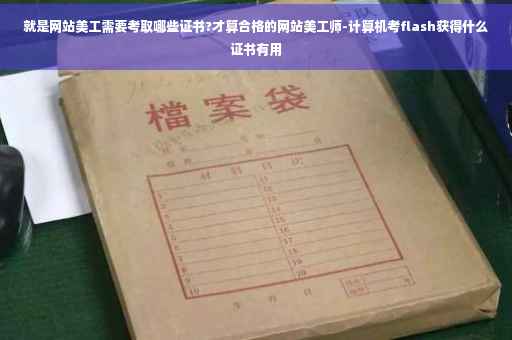 就是网站美工需要考取哪些证书?才算合格的网站美工师-计算机考flash获得什么
证书有用
檔案袋
材料目次
1
2
3
4
5
6
7
8
9
10
11
12
13
14
15
16
17
18
19
20
年 月 日